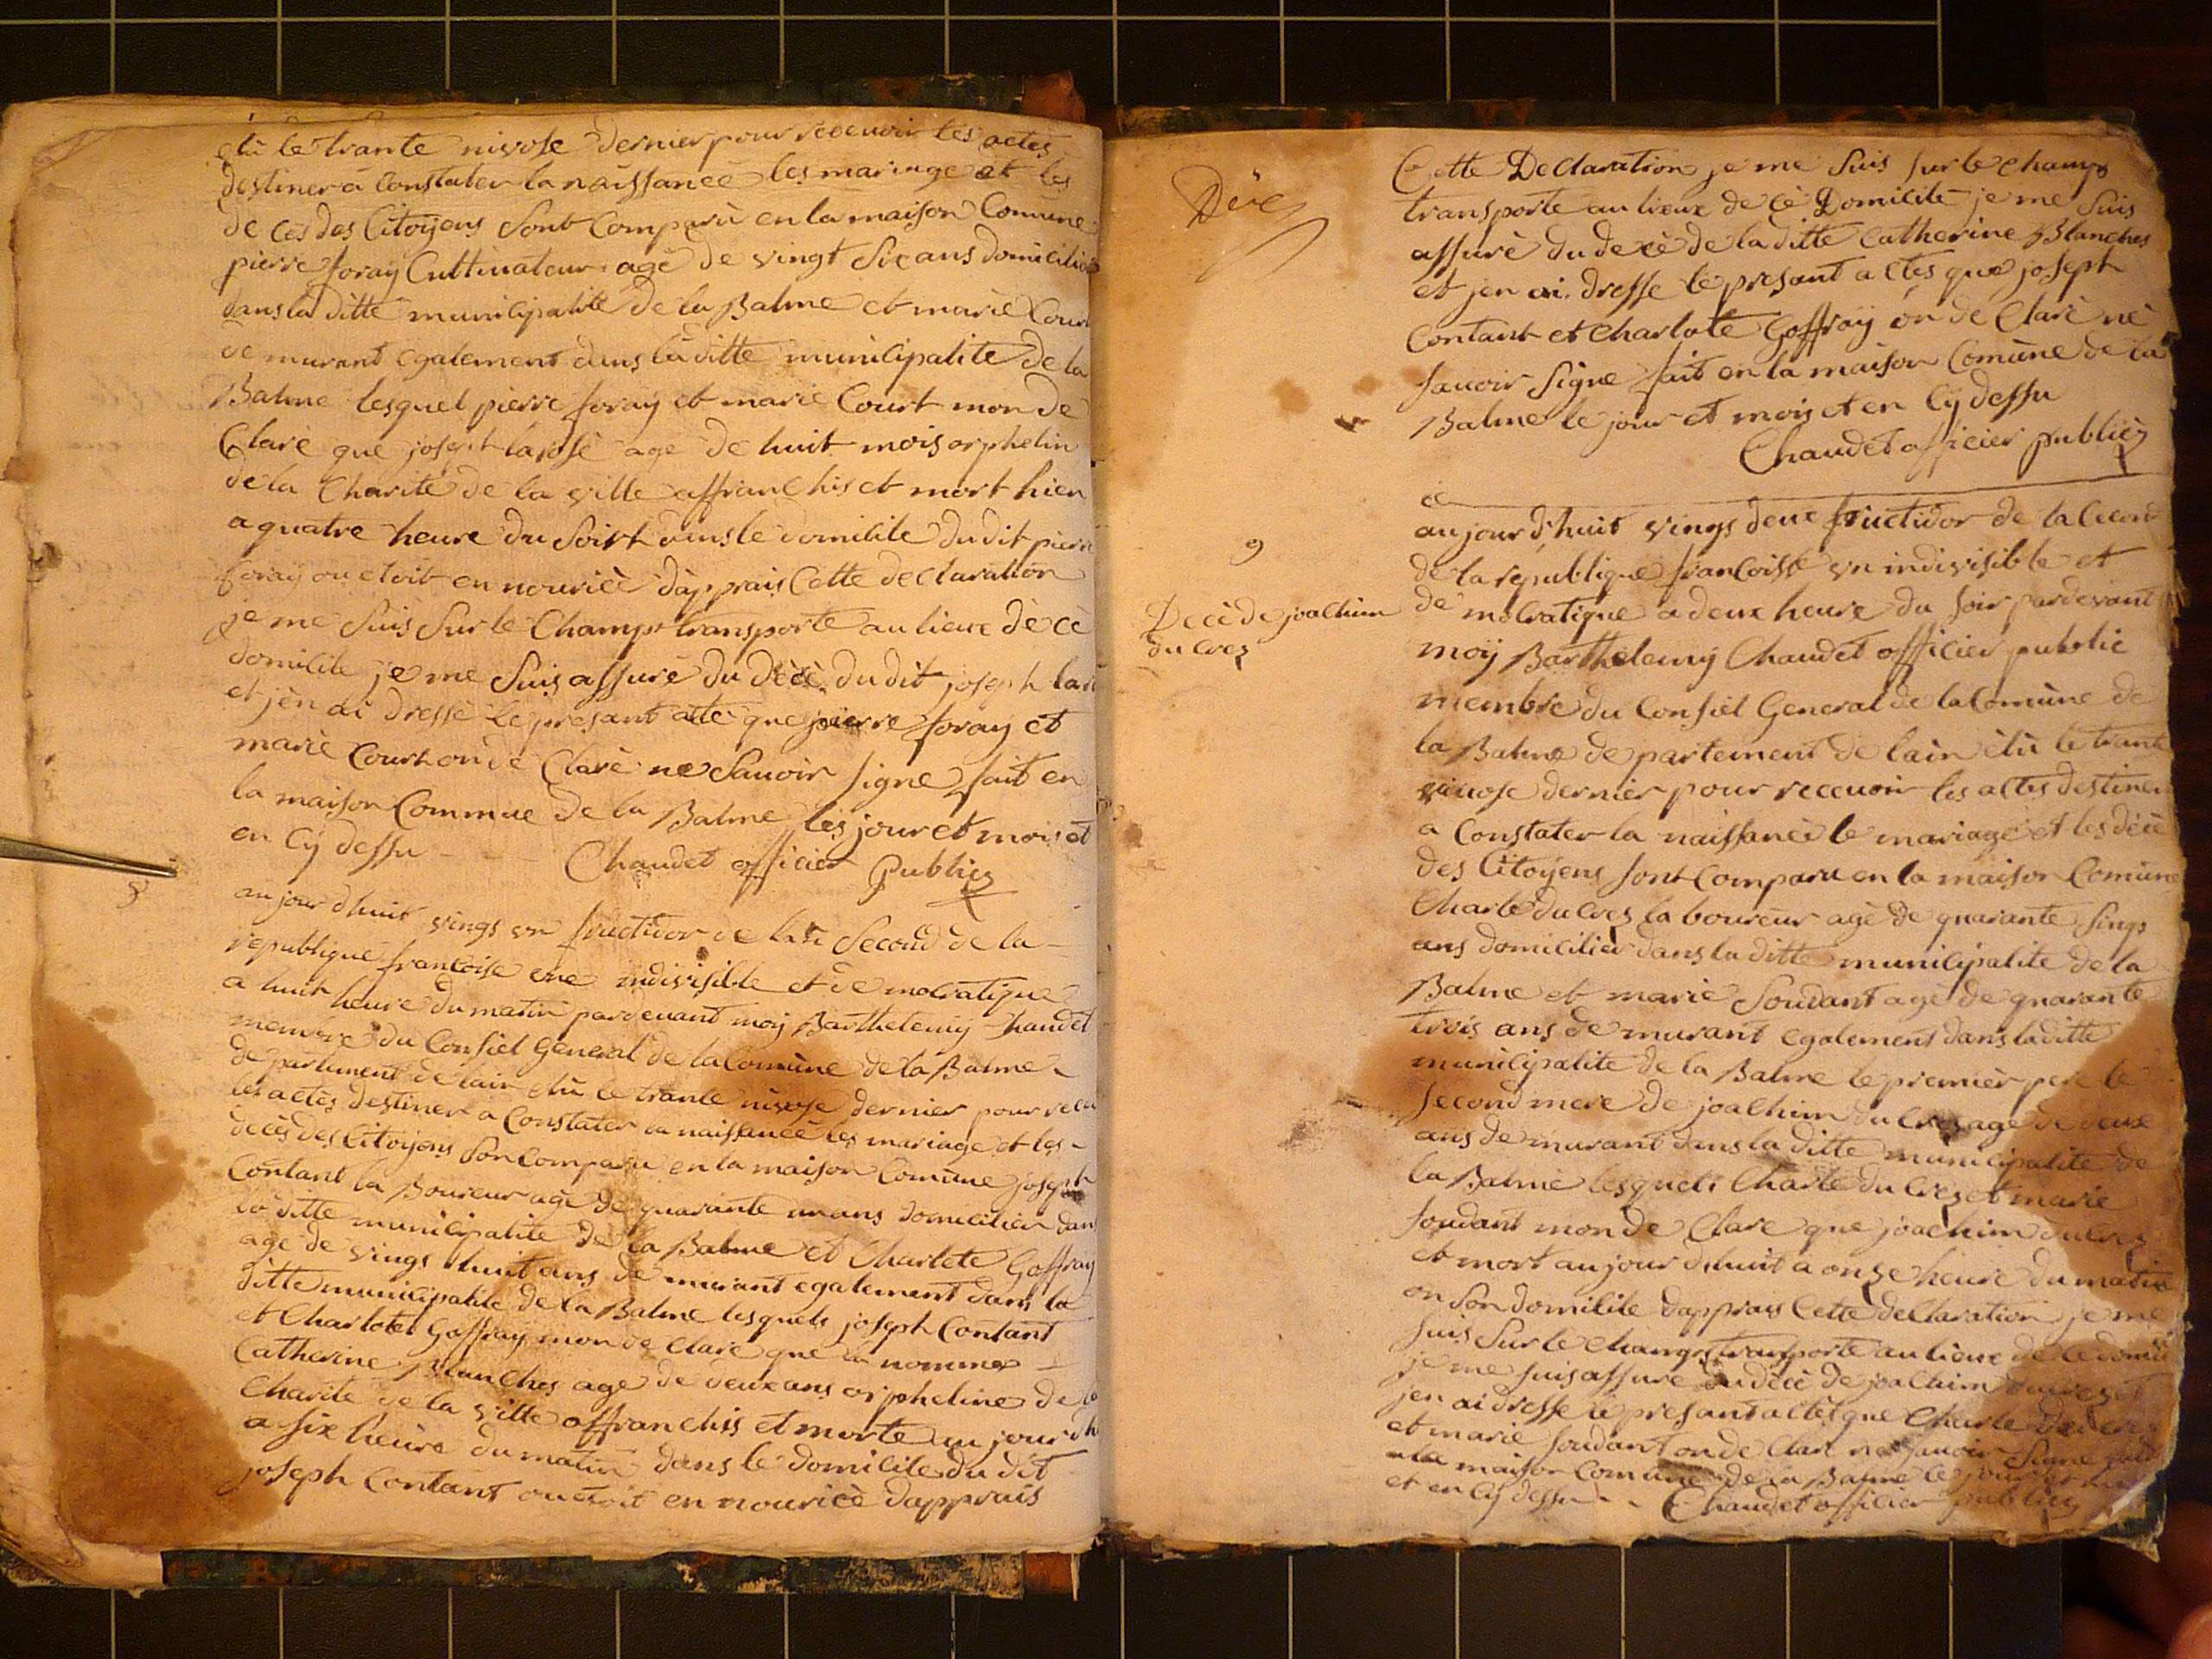 élu le trante nivose dernier pour recevoir les actes
destiner a constater la naissance les mariage et les
de ces des Citoyens sont Comparù en la maison Comune
pierre foray Cultivateur agé de vingt Six ans domicilié
dans la ditte municipalité de la Balme et marie Court
de murant egalement dans la ditte municipalite de la
Balme lesquel pierre foray et marie Court mon de
Claré que joseph larose age de huit mois orphelin
de la Charité de la ville affranchis et mort hier
a quatre heure du Soirt dans le domicile du dit pierre
foray ou etoit en nourice d'apprais Cette declaration
je me Suis Sur le Champt transporte au lieux de cè
domicile je me Suis assuré du décè du dit joseph
et j'en ai dressé le présant atte que pierre foray et
marie Court on dé Claré ne Savoir signe fait en
la maison Commue de la Balme les jour et mois et
en Cy dessu Chaudet officier Publicq
8
aujourdhuit vings un fructidor de lan Second de la
republique francoise une indivisible et de mocratique
a huit heure du matin pardevant moy Barthelemy Chaudet
membre du Consiel General de la Comùne de la Balme
departement de lain élù le trante nivose dernier pour
les actes destiner a Constater la naissance les mariage et les
décès des Citoyens Son Comparu en la maison Comune joseph
Contant la Boureur agé de quarante un ans domicilier dans
la ditte municipalite de la Balme et Charlote Goffray
age de vings huit ans de murant egalement dans la
ditte municipalité de la Balme lesquels joseph Contant
et Charlotes Goffray mon de Claré que la nommes
Catherine Blanches age de deux ans orpheline de la
Charité de la ville affranchis et morte au jour dh
a six heure du matin dans le domicile du dit
joseph Contant ou etoit en nouricè dapprais
Déce
Cette Declaration je me Suis sur le Champs
transporte au lieux de cè Domicile je me Suis
assuré du decè de la ditte Catherine Blanches
et jen ai dresse le presant actes que joseph
Contant et Charlote Goffray on de Claré ne
savoir signe fait en la maison Comùne de la
Balme le jour et mois et en Cy dessu
Chaudet officier publicq
9
Decè de joachim
du Crez
aujourd'huit vings deux fructidor de la Cecond
de la republique francoisse un indivisible et
de mocratique a deux heure du soir pardevant
moy Barthelemy Chaudet officier public
membre du Consiel General de la Comùne de
la Balme de partement de lain élù le trante
nivose dernier pour recevoir les actes destiner
a Constater la naissance le mariage et les décè
des Citoyens sont Comparu en la maison Comune
Charle du Crez la boureur agé de quarante sings
ans domicilier dans la ditte municipalite de la
Balme et marie Soudant agé de quarante
trois ans de murant egalement dans la ditte
municipalite de la Balme le premier pere le
second mere de joachim du Crez age de deux
ans de murant dans la ditte municipalite de
la Balme lesquels Charle du Crez et marie
soudant mon de Claré que joachim du Crez
et mort aujourdhuit a onze heure du matin
en Son domicile dapprais Cette declaration je me
suis Sur le Champs transporte au lieux de ce
je me suis assure du décè de joachim
jen ai dresse le presant actes que Charle
et marie soudant on de Claré ne savoir Signe fait
a la maison Comune de la Balme le jour
et en Cy dessu Chaudet officier publicq